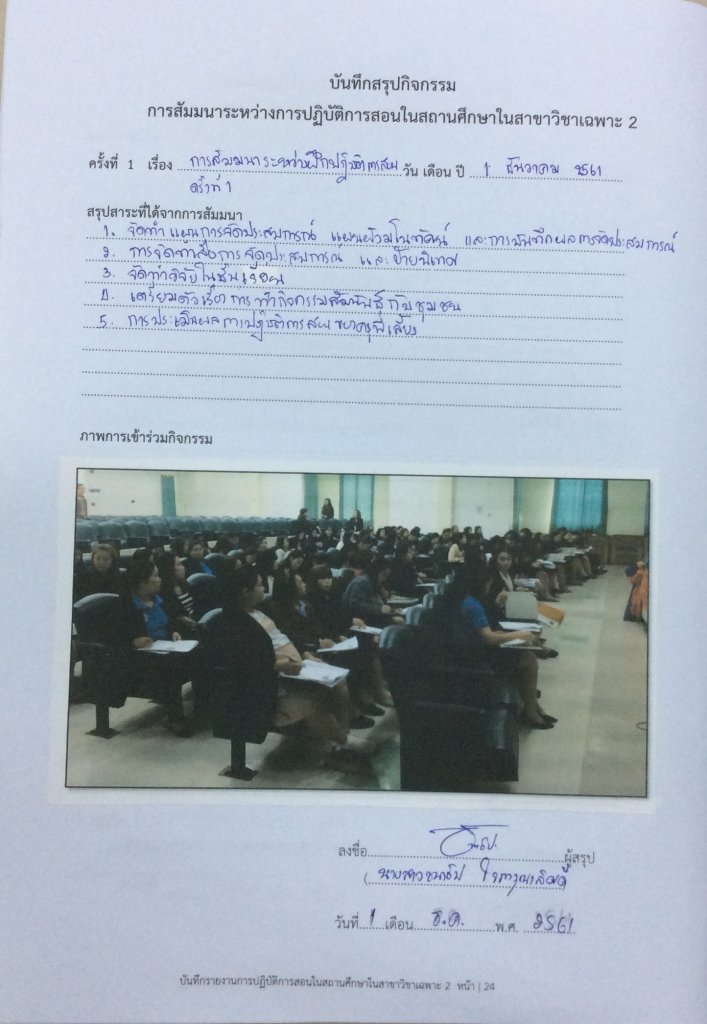 บันทึกสรุปกิจกรรม
การสัมมนาระหว่างการปฏิบัติการสอนในสถานศึกษาในสาขาวิชาเฉพาะ 2
ครั้งที่ 1 เรื่อง การสัมมนาระหว่างฝึกปฏิบัติการสอน วัน เดือน ปี 1 ธันวาคม 2561
ครั้งที่ 1
สรุปสาระที่ได้จากการสัมมนา
1. จัดทำแผนการจัดประสบการณ์ แผนผังมโนทัศน์ และการบันทึกผลการจัดประสบการณ์
2. การจัดทำสื่อการจัดประสบการณ์ และป้ายนิเทศ
3. จัดทำวิจัยในชั้นเรียน
4. เตรียมตัวเรื่องการทำกิจกรรมสัมพันธ์กับชุมชน
5. การประเมินผลการปฏิบัติการสอนของครูพี่เลี้ยง
ภาพการเข้าร่วมกิจกรรม
ลงชื่อ ผู้สรุป
(นางสาว )
วันที่ 1 เดือน ธ.ค. พ.ศ. 2561
บันทึกรายงานการปฏิบัติการสอนในสถานศึกษาในสาขาวิชาเฉพาะ 2 หน้า | 24